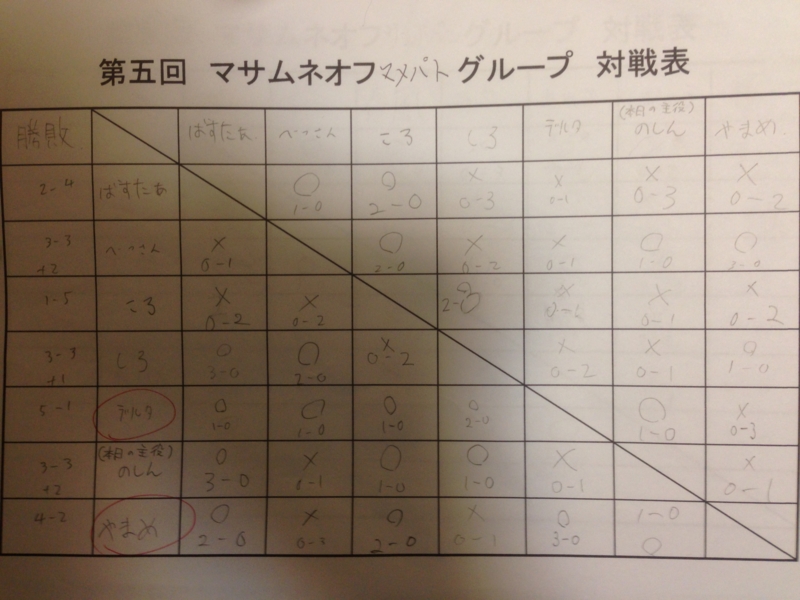 第五回 マサムネオフマメパト グループ 対戦表
勝敗 ばすたぁ ころ しろ デルタ (本日の主役) のしん やまめ
2-4 ばすたぁ ○ 1-0 ○ 2-0 × 0-3 × 0-1 × 0-3 × 0-2
3-3 +2 × 0-1 ○ 2-0 × 0-2 × 0-1 ○ 1-0 ○
1-5 ころ × 0-2 × 0-2 2-0 × × 0-1 × 0-2
3-3 +1 しろ ○ 3-0 ○ 2-0 × 0-2 × 0-2 × 0-1 ○ 1-0
5-1 デルタ ○ 1-0 ○ 1-0 ○ 1-0 ○ 2-0 ○ 1-0 × 0-3
3-3 +2 (本日の主役) のしん ○ 3-0 × 0-1 ○ 1-0 ○ 1-0 × 0-1 × 0-1
4-2 やまめ ○ 2-0 × ○ 2-0 × 0-1 ○ 3-0 1-0 ○